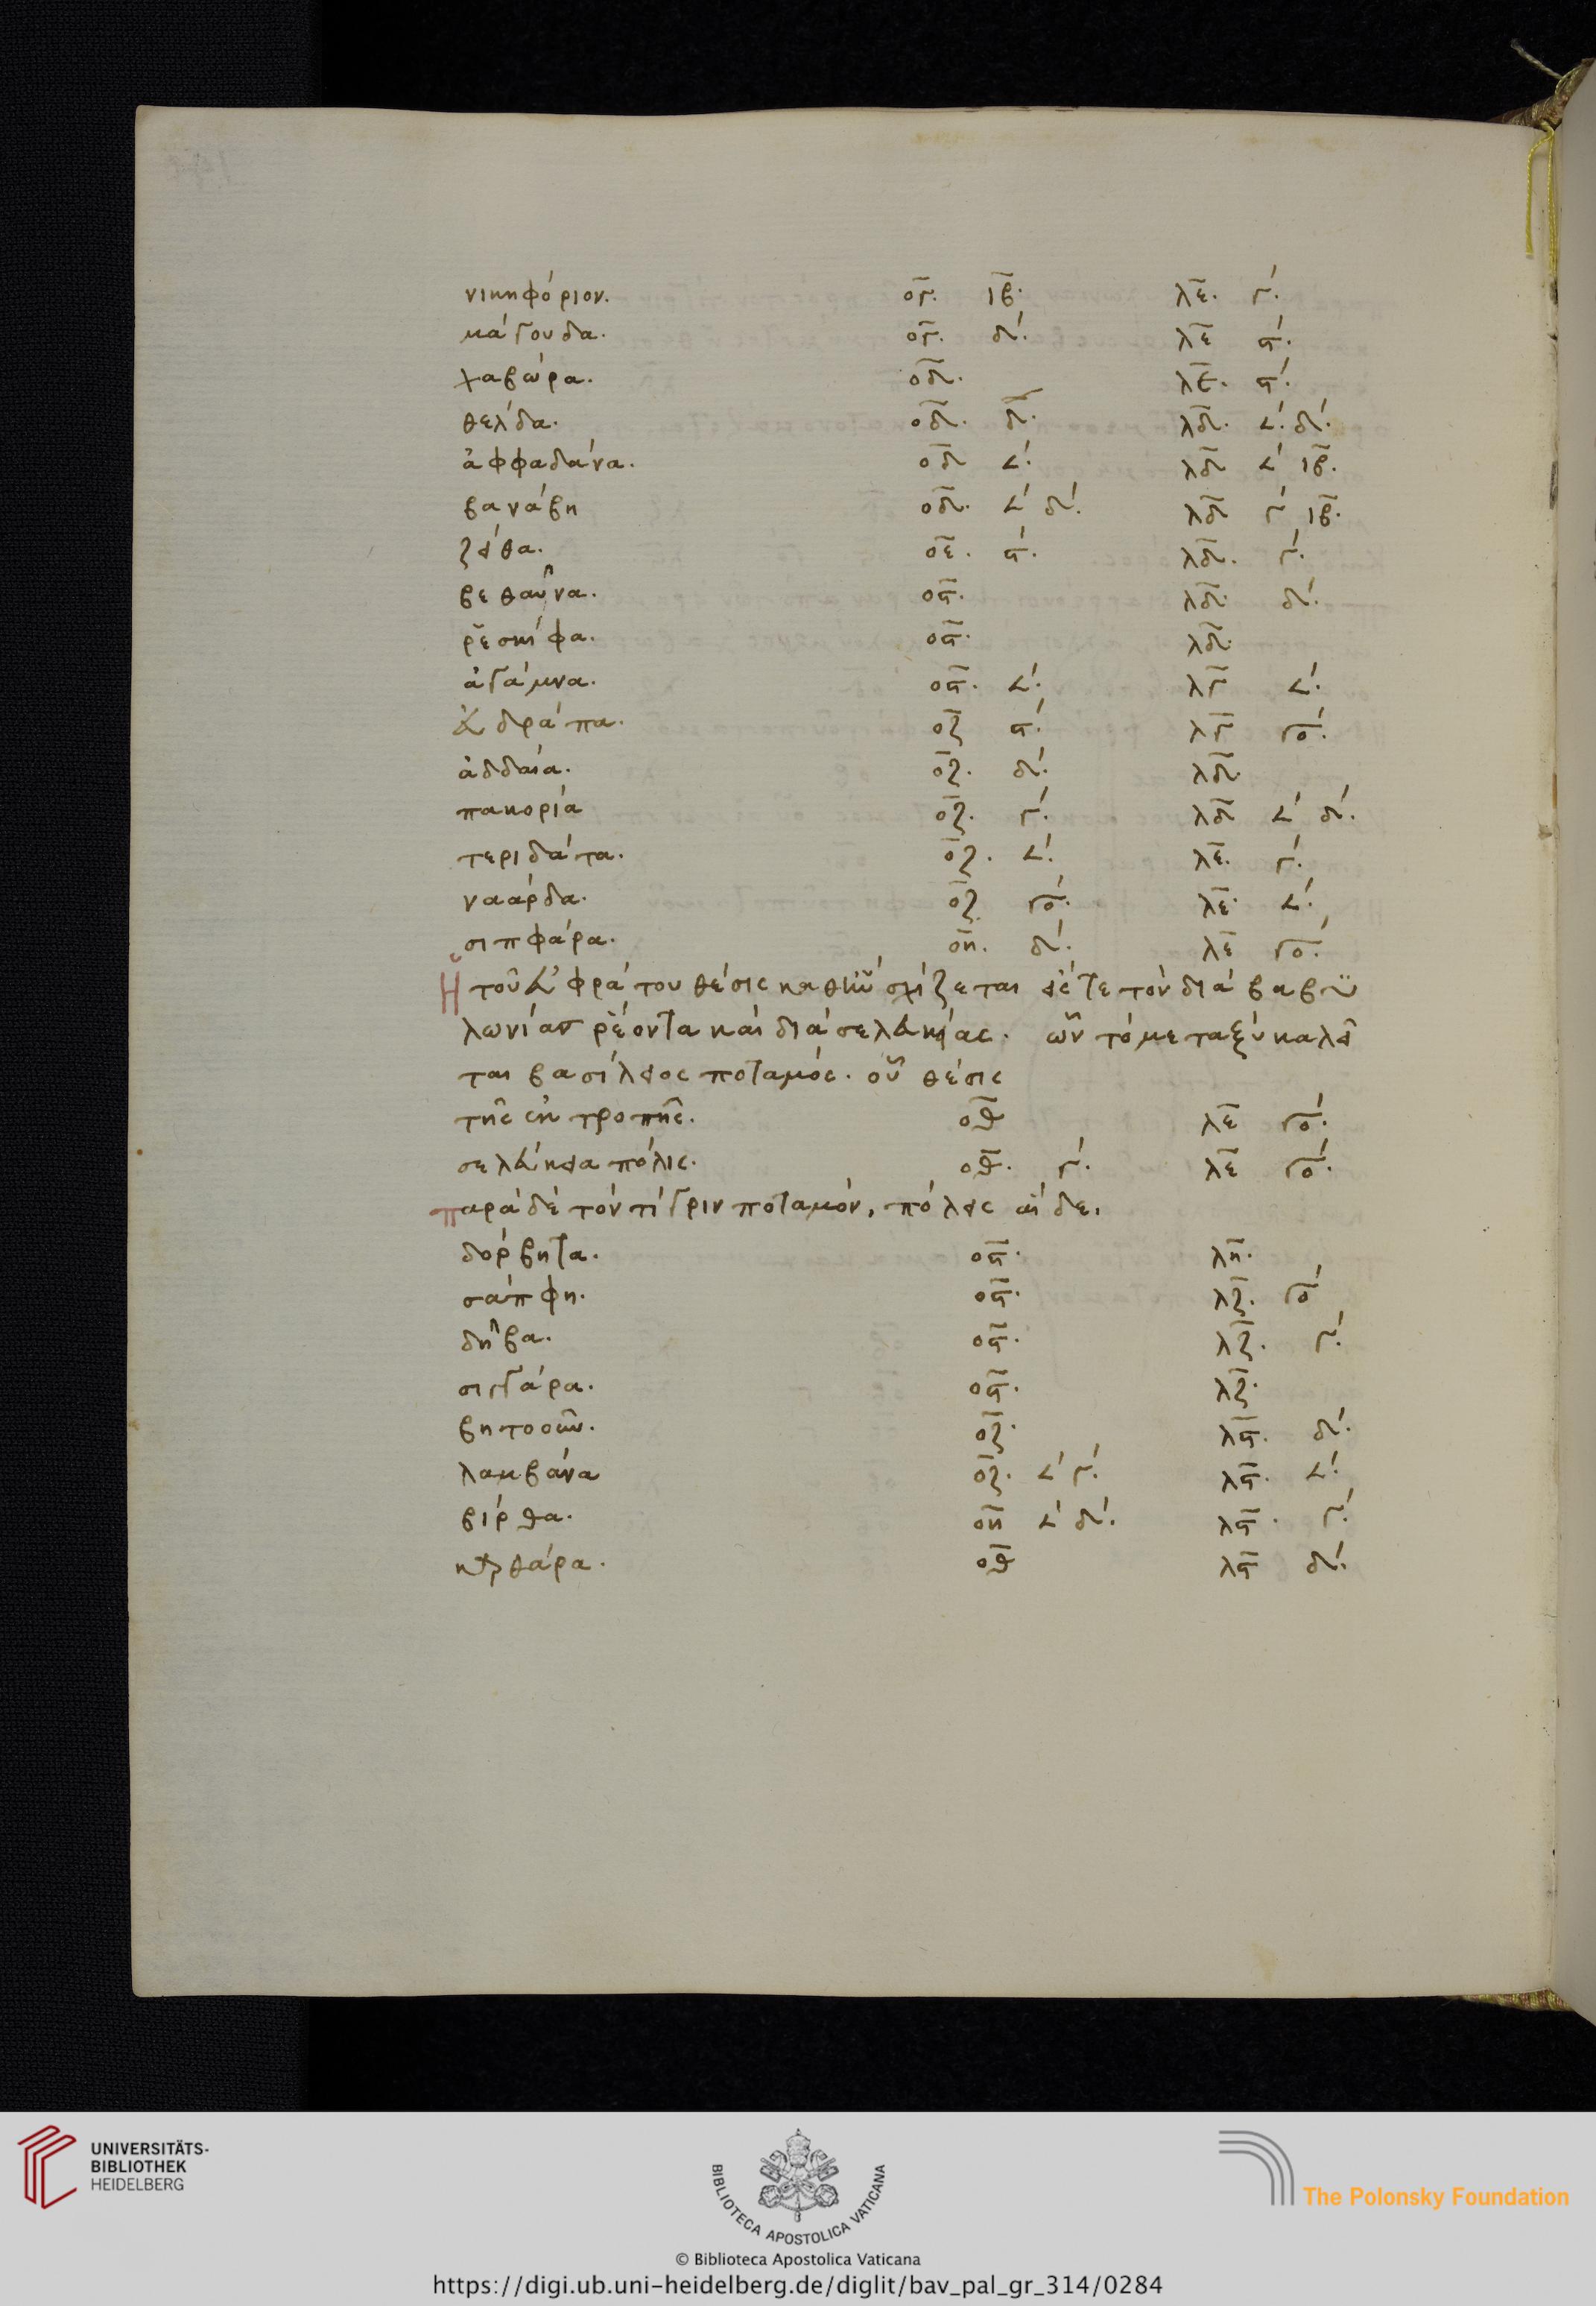 νικηφόριον. ογ. ιβ. λε. γ΄.
μάγουδα. ογ. δ΄. λε ϛ΄.
χαβώρα. οδ. λε. ϛ΄.
θελδα. οδ. δ. λδ. 𐅵΄. δ΄.
ἀφφαδάνα. οδ 𐅵΄. λδ 𐅵΄ ιβ.
βανάβη οδ. 𐅵΄ δ΄. λδ γ΄ ιβ.
ζείθα. οε. ϛ΄. λδ. γ΄.
βεθαῦνα. οϛ. λδ. δ΄.
ῥεσκίφα. οϛ. λδ.
ἀγάμνα. οϛ. 𐅵΄. λγ 𐅵΄.
εὐδράπα. οζ ϛ΄. λγ γο΄.
ἀδδαία. οζ. δ΄. λδ.
πακορία οζ. γ΄. λδ 𐅵΄ δ΄.
τεριδάτα. οζ. 𐅵΄. λε. γ΄.
ναάρδα. οζ γο΄. λε. 𐅵΄.
σιπφάρα. οη. δ΄. λε γο΄.
Ἡ τοῦ εὐφράτου θέσις καθ' ἣν σχίζεται εἴς τε τὸν διὰ βαβυ
λωνίας ῥέοντα καὶ διὰ σελευκίας. ὧν τὸ μεταξὺ καλεῖ
ται βασίλειος ποταμός. οὗ θέσις
τῆς ἐκτροπῆς. οθ λε γο΄.
σελεύκεια πόλις. οθ. γ΄. λε γο΄.
παρὰ δὲ τὸν τίγριν ποταμόν, πόλεις αἵδε.
δόρβητα. οϛ. λη.
σάπφη. οϛ. λζ. γο΄
δῆβα. οϛ. λζ. γ΄.
σιγγάρα. οϛ. λζ.
βητοοῦν. οζ. λϛ. δ΄.
λαμβάνα οζ. 𐅵΄ γ΄. λϛ. 𐅵΄.
βίρθα. οη 𐅵΄ δ΄. λϛ. γ΄.
καρθάρα. οθ λϛ δ΄.
UNIVERSITÄTS-
BIBLIOTHEK
HEIDELBERG
BIBLIOTECA APOSTOLICA VATICANA
The Polonsky Foundation
© Biblioteca Apostolica Vaticana
https://digi.ub.uni-heidelberg.de/diglit/bav_pal_gr_314/0284